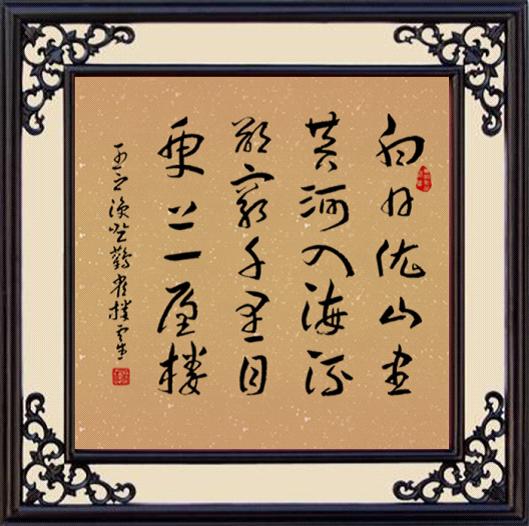 白日依山尽
黄河入海流
欲穷千里目
更上一层楼
王之涣登鹳雀楼